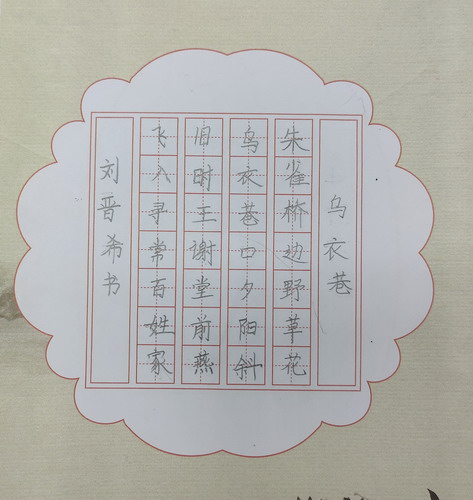 乌衣巷
朱雀桥边野草花
乌衣巷口夕阳斜
旧时王谢堂前燕
飞入寻常百姓家
刘晋希书